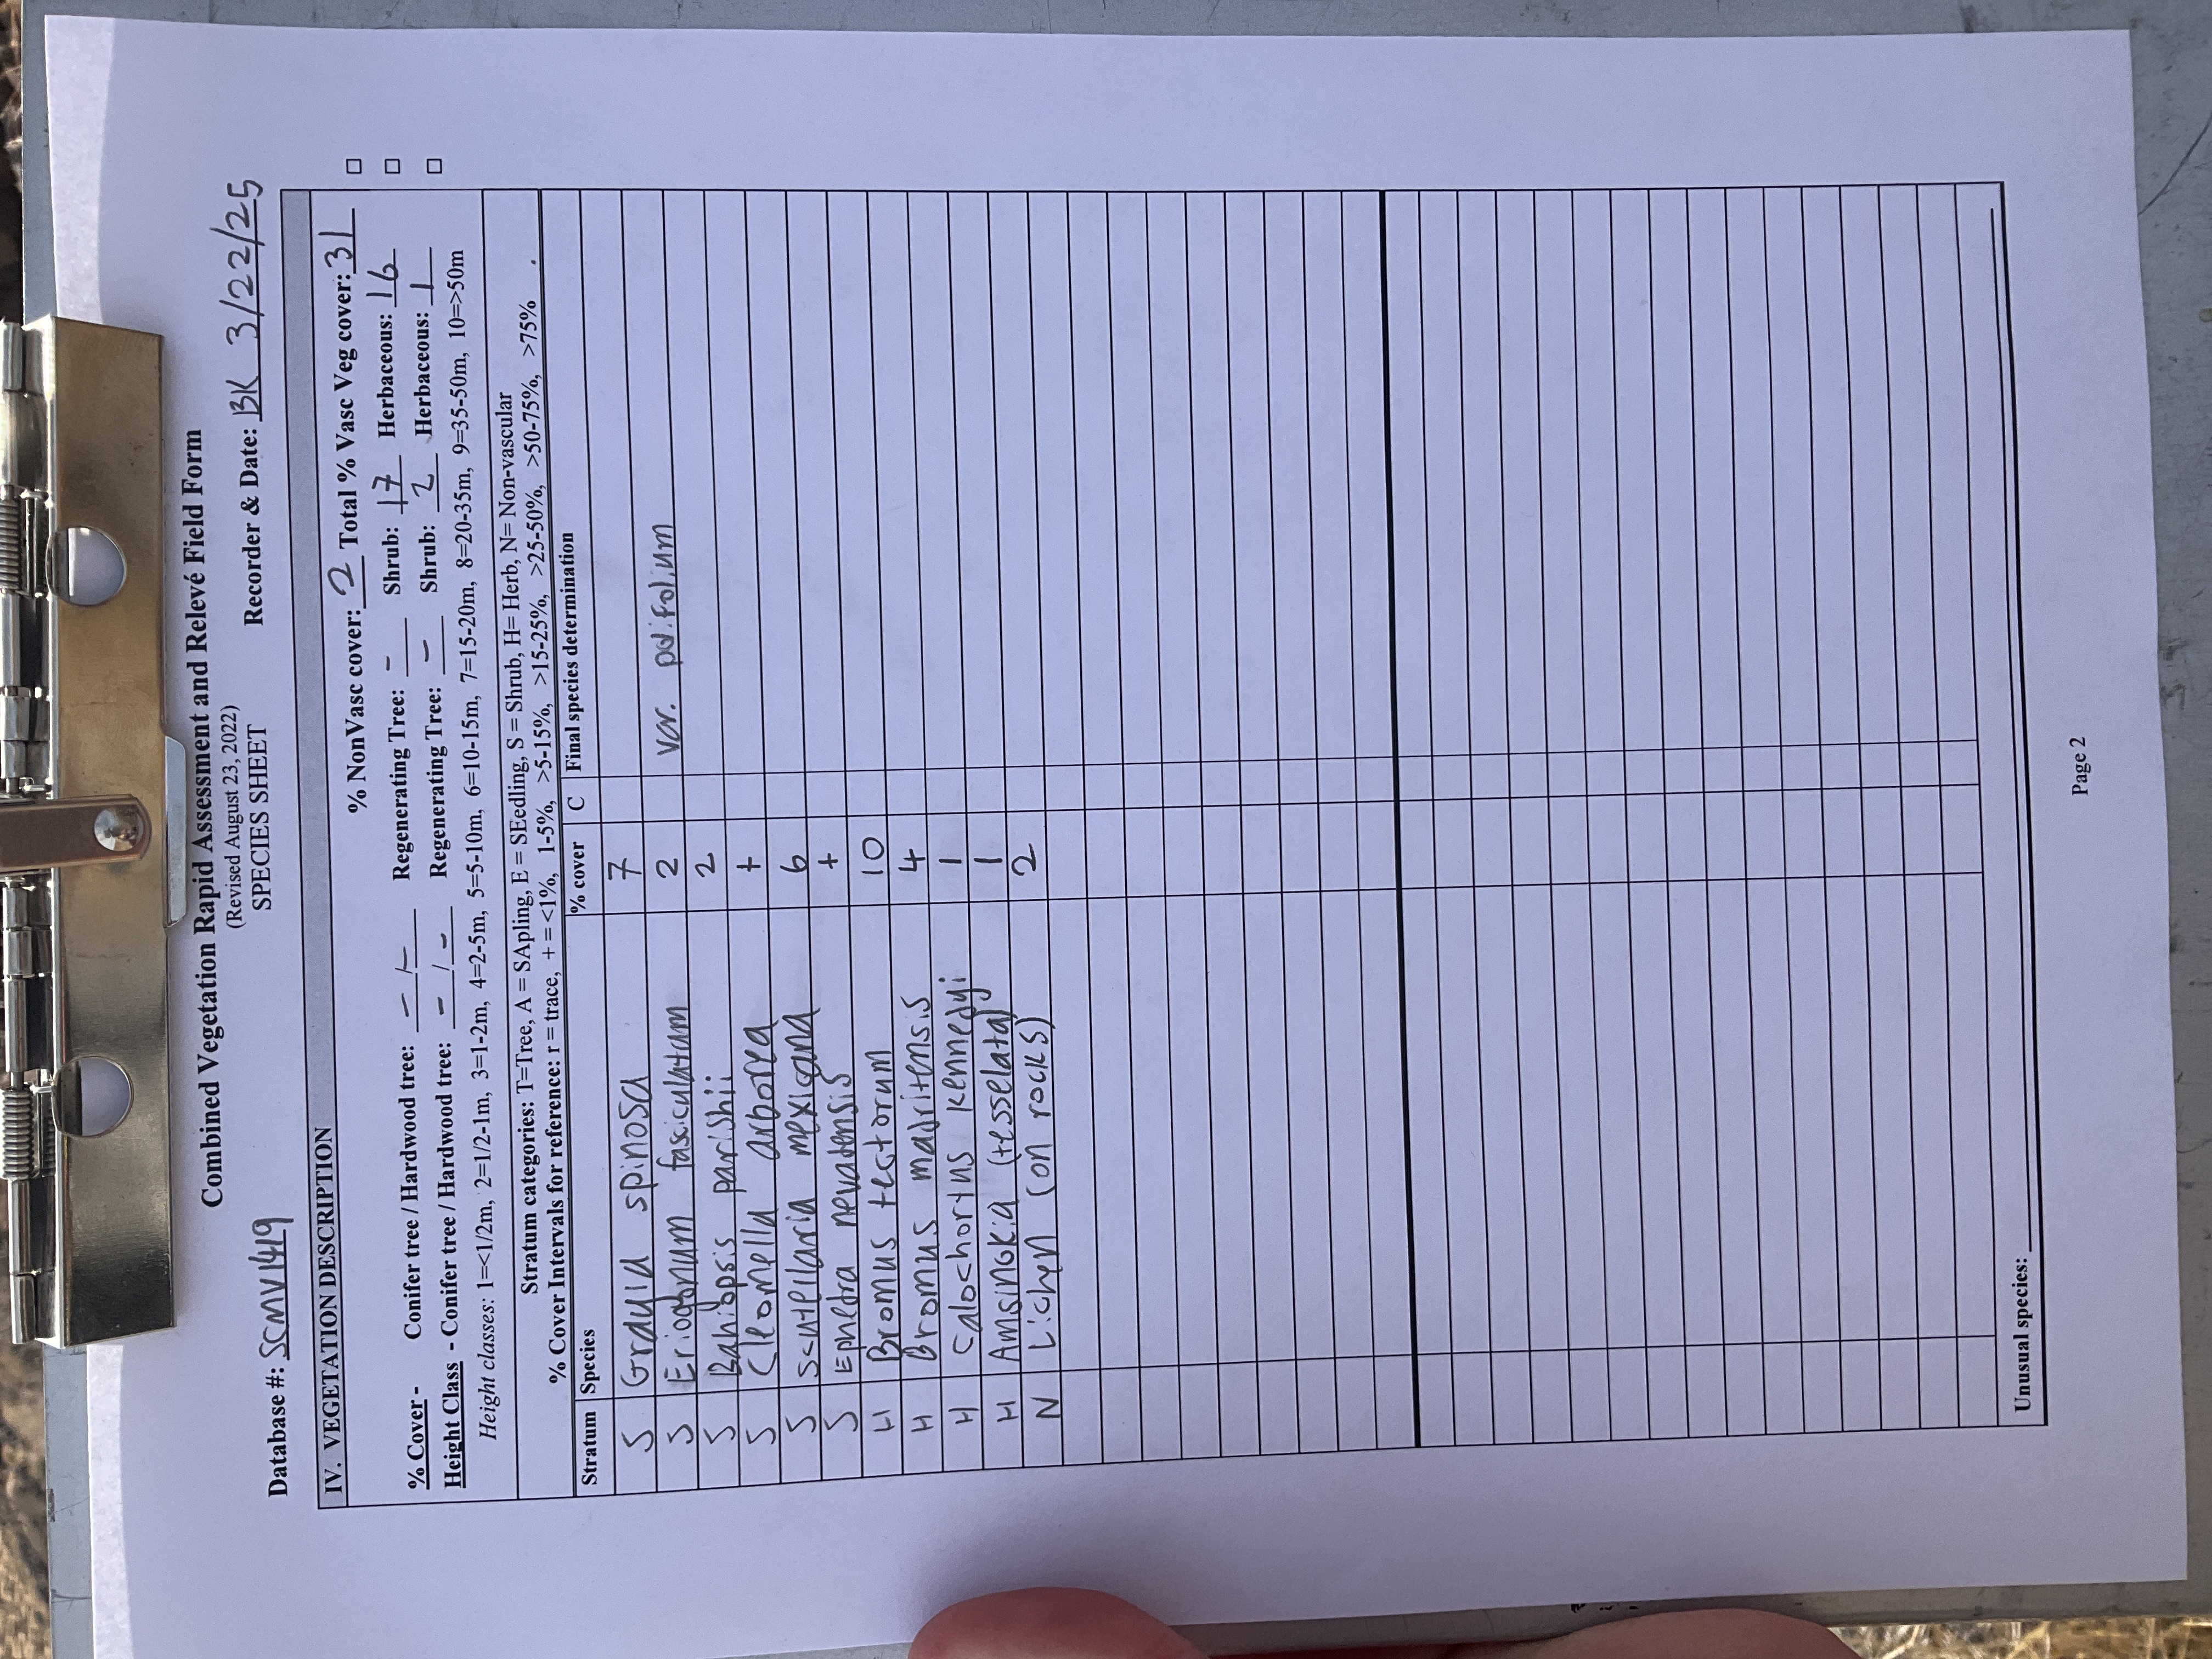 Combined Vegetation Rapid Assessment and Relevé Field Form
(Revised August 23, 2022)
SPECIES SHEET
Database #: SSMV1419 Recorder & Date: BK 3/22/25
IV. VEGETATION DESCRIPTION
% NonVasc cover: 2 Total % Vasc Veg cover: 31
% Cover - Conifer tree / Hardwood tree: - / - Regenerating Tree: - Shrub: 17 Herbaceous: 16
Height Class - Conifer tree / Hardwood tree: - / - Regenerating Tree: - Shrub: 2 Herbaceous: 1
Height classes: 1=<1/2m, 2=1/2-1m, 3=1-2m, 4=2-5m, 5=5-10m, 6=10-15m, 7=15-20m, 8=20-35m, 9=35-50m, 10=>50m
Stratum categories: T=Tree, A = SApling, E = SEedling, S = Shrub, H= Herb, N= Non-vascular
% Cover Intervals for reference: r = trace, + = <1%, 1-5%, >5-15%, >15-25%, >25-50%, >50-75%, >75%
Stratum Species % cover C Final species determination
S Grayia spinosa 7
S Eriogonum fasciculatum 2 var. polifolium
S Bahiopsis parishii 2
S Cleomella arborea +
S Scutellaria mexicana 6
S Ephedra nevadensis +
H Bromus tectorum 10
H Bromus madritensis 4
H Calochortus kennedyi 1
H Amsinckia (tesselata) 1
N Lichen (on rocks) 2
Unusual species:
Page 2